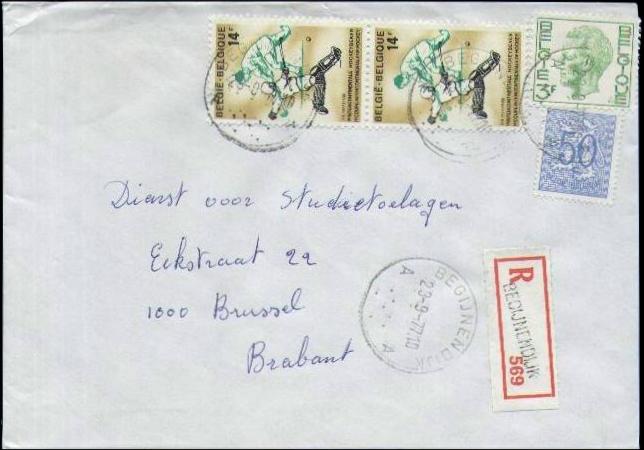 BELGIË-BELGIQUE 14F
BELGIË-BELGIQUE 14F
BELGIQUE
BELGIE 3F
50
Dienst voor Studietoelagen
Eekstraat 22
1000 Brussel
Brabant
BEGIJNENDIJK
23-9-77.10
A A
R
BEGIJNENDIJK
569